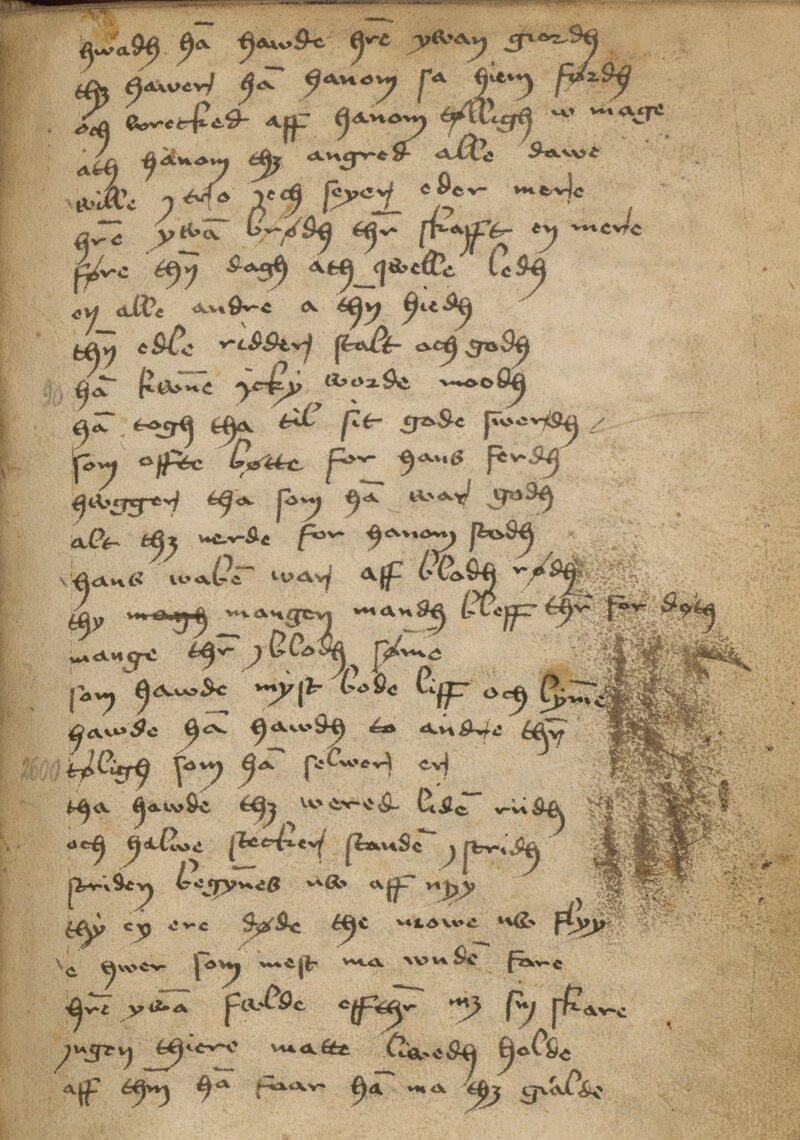 hwadh hā hawde hrē ywan giordh
thꝫ hawer hā hanom sa hiem førdh
och wrecked aff hanom tølligh w mage
ath hanom thꝫ angred alle dawe
wille j tro jech seyer eder mere
hrē ywā brødh thr̄ skafft en mere
føre thn̄ dagh ath qwelle ledh
en alle andre a thn̄ hiedh
thn̄ edle ridder stalt och godh
90 hā kwn̄e jcky worde moodh
hā togh tha til sit gode swerdh
som offte bøtte for hans ferdh
hwgger tha som hā war godh
alt thꝫ nerde for hanom stodh
hans wabē war aff blodh rødh
thy mangen mandh bleff thr̄ for døth
mange thr̄ j blodh søm̄e
som hawde myst bode liff och lym̄e
hawde hā hawdh to andre thn̄
2600 tøligh som hā selwer er
tha hawde thꝫ wered lidē riidh
och halwe stecker standē j stridh
striden begyn̄es nw aff nyy
thy ey ere døde the mowe nw flyy
e hwer som mest ma wndē fare
hrē ywā fwlde effthr̄ mꝫ sin skare
jngen thiere matte liwedh holde
aff thm̄ hā faar hā ma thꝫ gialde